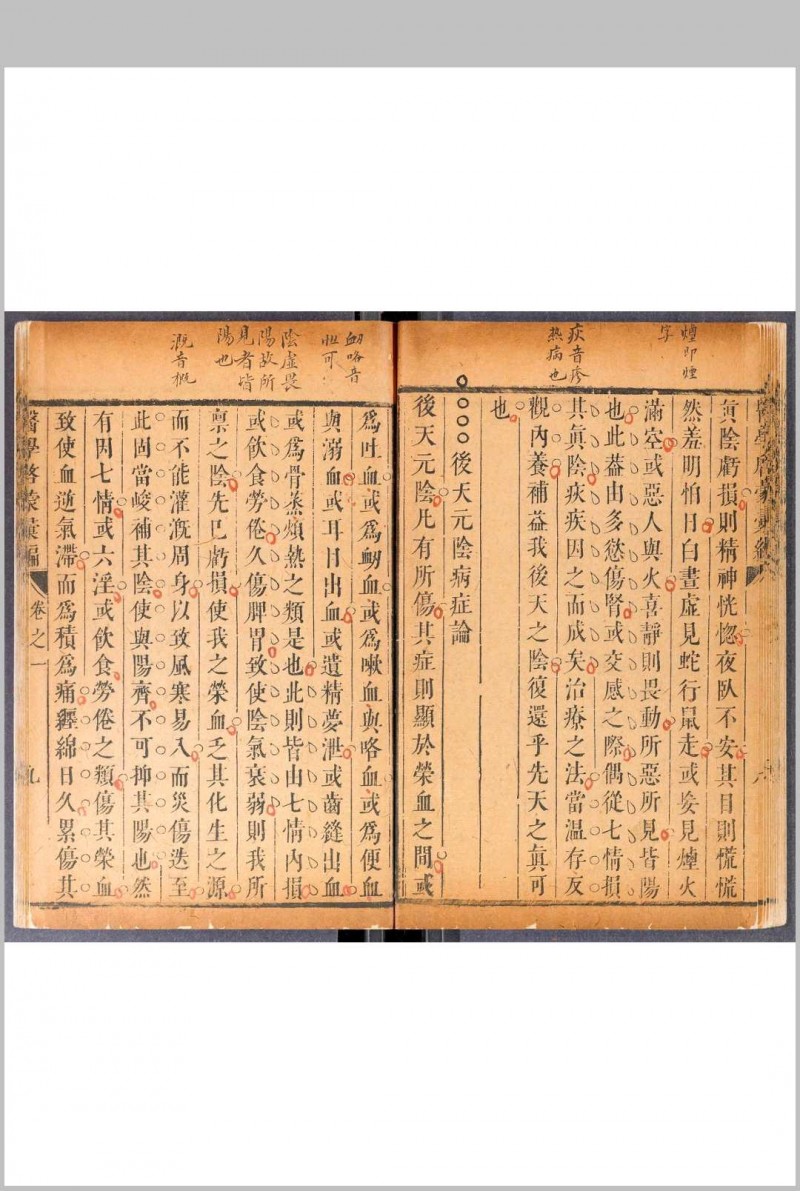 煙即烟
字
疢音疹
热病也
眞陰虧損則精神恍惚夜臥不安其目則慌慌
然羞明怕日白晝虛見蛇行鼠走或妄見煙火
滿空或惡人與火喜靜則畏動所惡所見皆陽
也此葢由多慾傷腎或交感之際偶從七情損
其眞陰疢疾因之而成矣治療之法當温存反
觀內養補益我後天之陰復還乎先天之眞可
也
後天元陰病症論
後天元陰凡有所傷其症則顯於榮血之間或
音
陰虛畏
陽故所
見者皆
陽也
溉音概
爲吐血或爲衂血或爲嗽血與咯血或爲便血
與溺血或耳目出血或遺精夢泄或齒縫出血
或爲骨蒸煩熱之類是也此則皆由七情內損
或飲食勞倦久傷脾胃致使陰氣衰弱則我所
禀之陰先已虧損使我之榮血乏其化生之源
而不能灌溉周身以致風寒易入而災傷迭至
此固當峻補其陰使與陽齊不可抑其陽也然
有因七情或六淫或飲食勞倦之類傷其榮血
致使血逆氣滯而爲積爲痛纒綿日久累傷其
醫學啓蒙彙編 卷之一 九